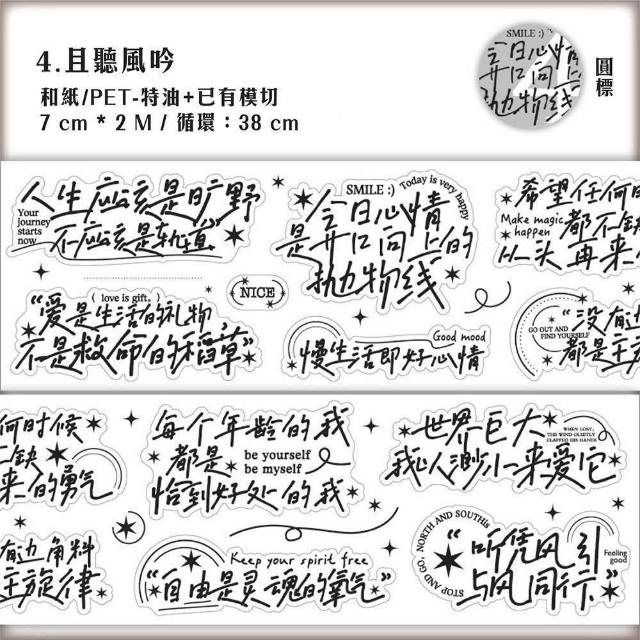 4.且聽風吟
和紙/PET-特油+已有模切
7 cm * 2 M / 循環：38 cm
圓標
SMILE :)
今日心情
是开口向上的
抛物线
人生应该是旷野
Your
journey
starts
now
不应该是轨道
SMILE :)
Today is very happy
今日心情
是开口向上的
抛物线
希望任何时
Make magic
happen
都不缺
从头再来
“爱是生活的礼物
( love is gift。)
不是救命的稻草”
NICE
Good mood
慢生活即好心情
GO OUT AND
FIND YOURSELF
“没有边
都是主旋
何时候
不缺
来的勇气
每个年龄的我
都是
be yourself
be myself
恰到好处的我
世界巨大
WHEN LOST,
THE WIND QUIETLY
CLAPPED HIS HANDS
我以渺小来爱它
有边角料
主旋律
Keep your spirit free
“自由是灵魂的氧气”
STOP AND GO, NORTH AND SOUTH
“听凭风引
Feeling
good
与风同行”